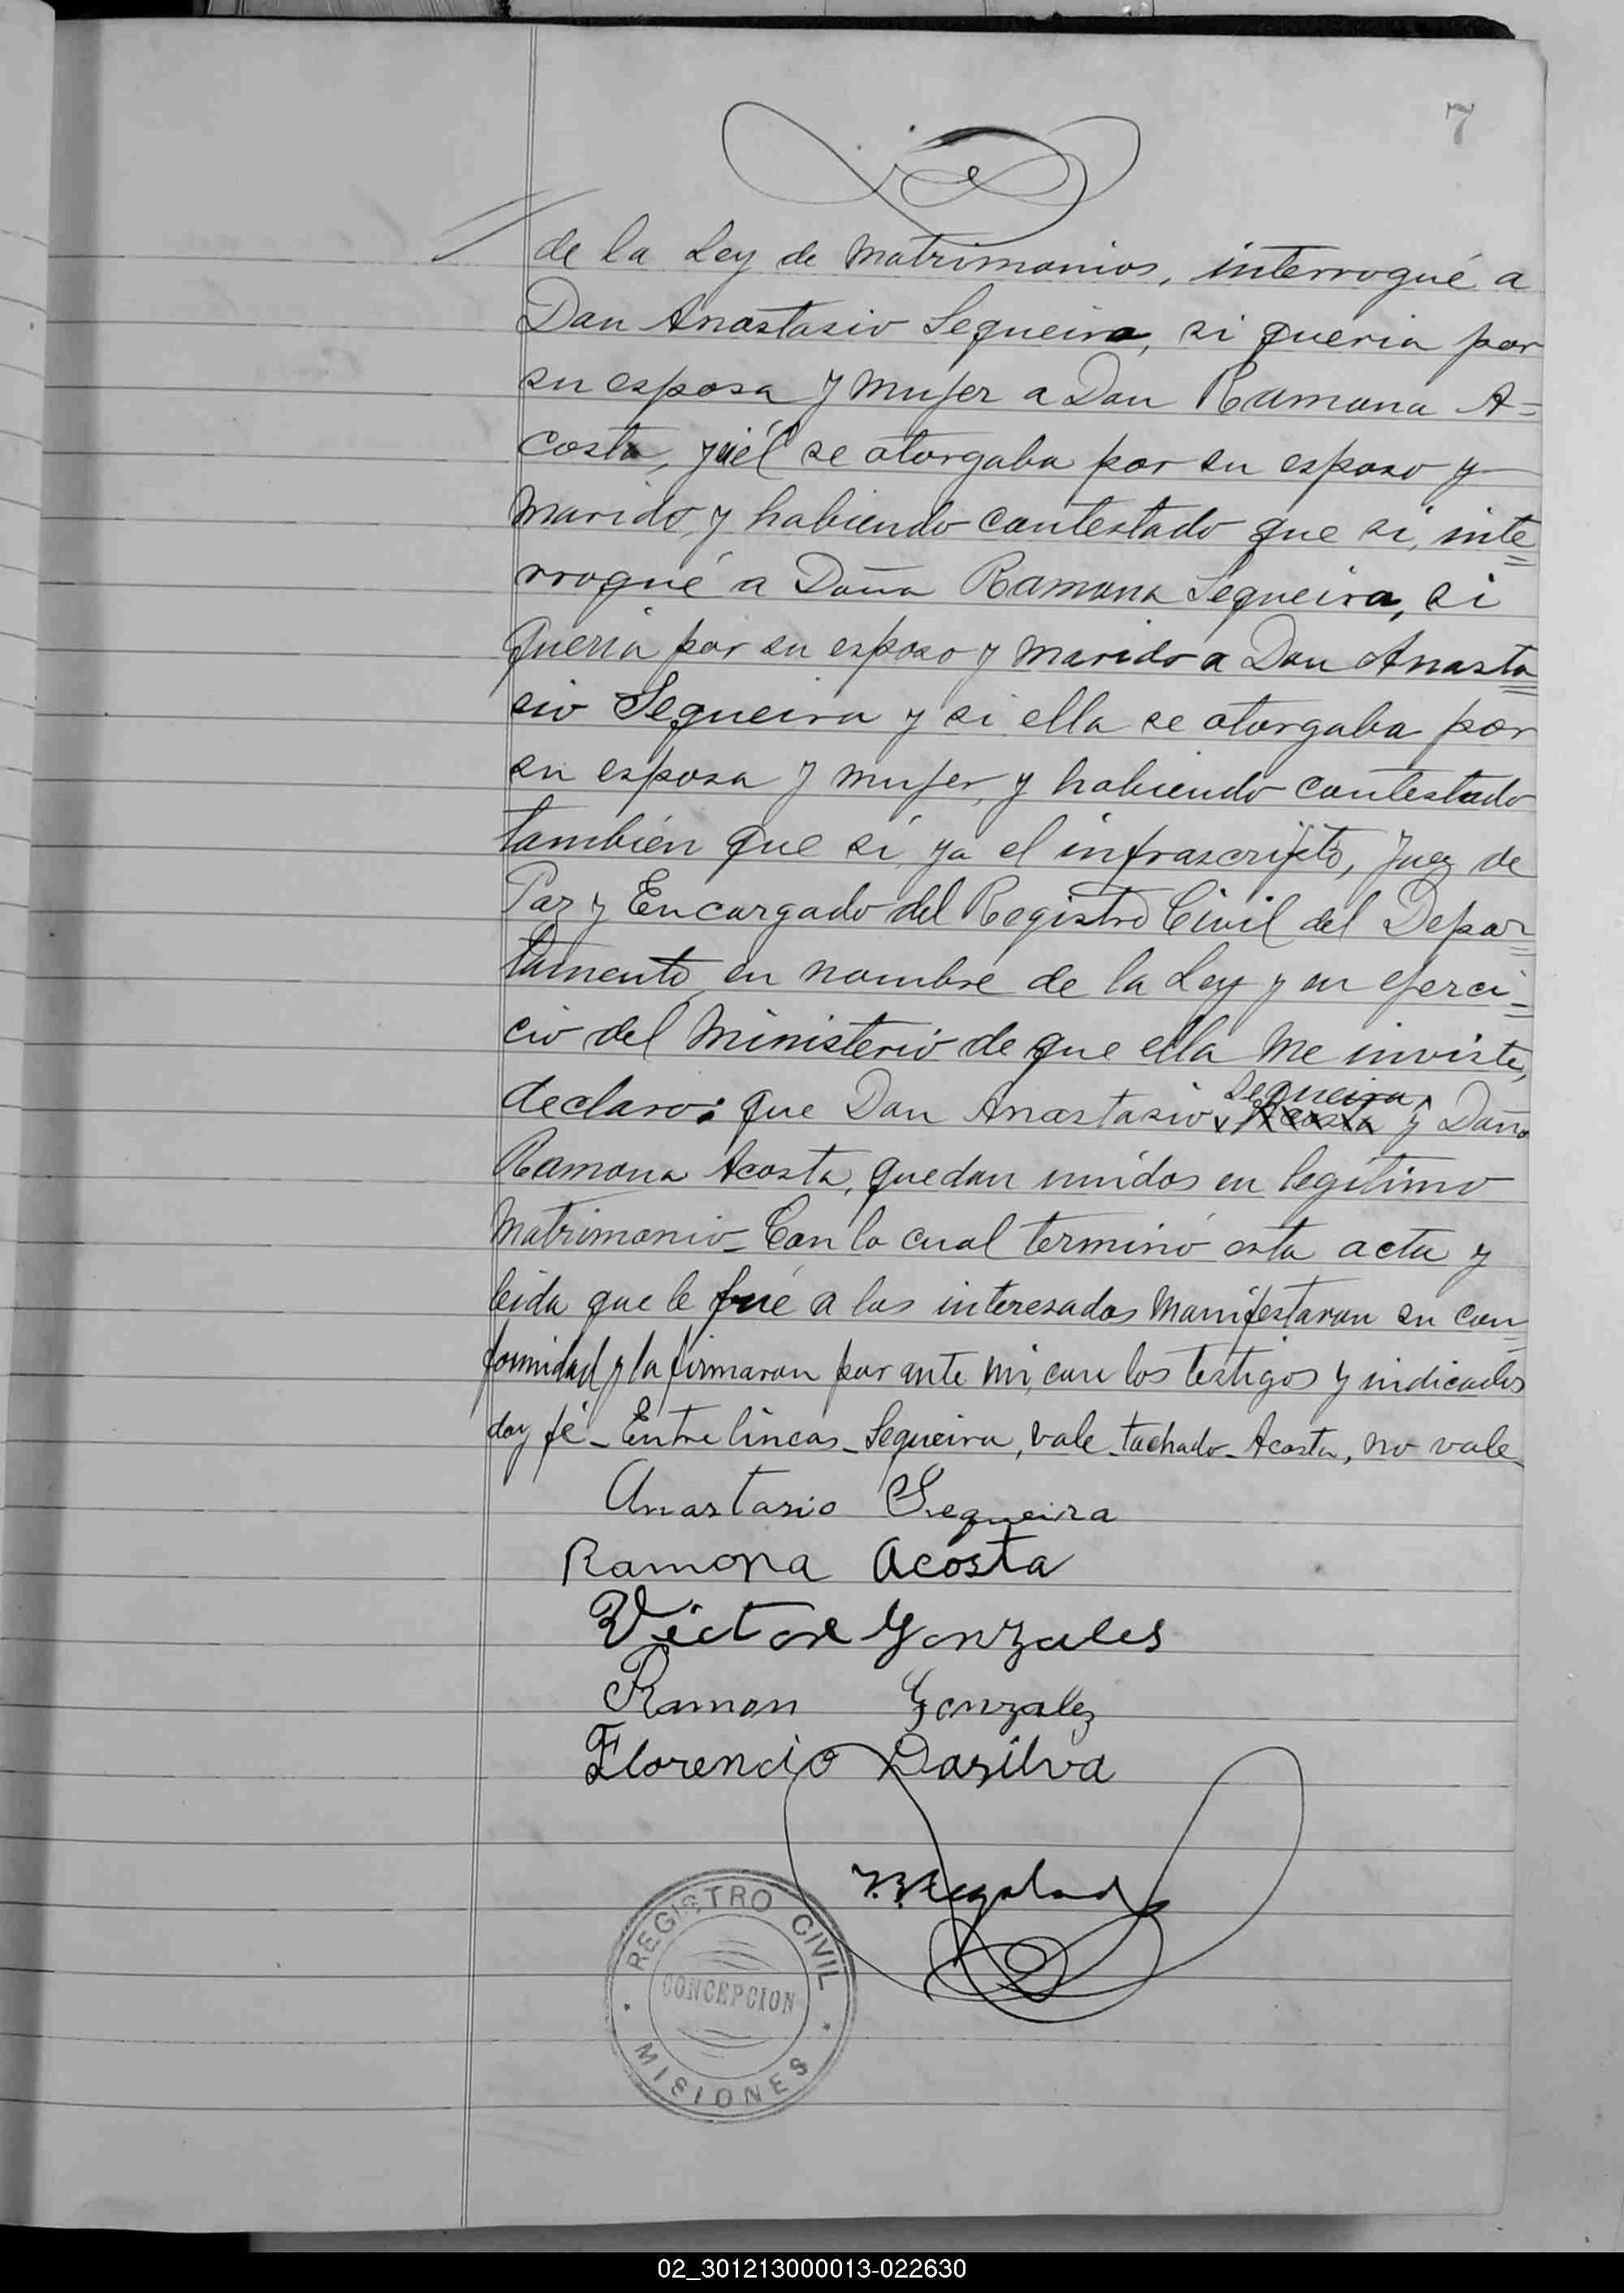 7
de la Ley de Matrimonios, interrogué a
Don Anastasio Sequeira, si queria por
su esposa y mujer a Don Ramona A=
costa, y él se otorgaba por su esposo y
marido, y habiendo contestado que si, inte=
rrogué a Doña Ramona Sequeira, si
queria por su esposo y marido a Don Anasta=
sio Sequeira y si ella se otorgaba por
su esposa y mujer, y habiendo contestado
también que sí, yo el infrascripto, Juez de
Paz y Encargado del Registro Civil del Depar=
tamento, en nombre de la Ley y en ejerci=
cio del Ministerio de que ella me inviste,
Sequeira
declaro: que Don Anastasio Acosta y Doña
Ramona Acosta, quedan unidos en legítimo
Matrimonio_ Con lo cual terminó esta acta y
leida que le fué a los interesados manifestaron su con=
formidad y la firmaron por ante mi, con los testigos y indicados
doy fé_ Entre lineas_ Sequeira, vale_ tachado_ Acosta, no vale_
Anastasio Sequeira
Ramona Acosta
Victor Gonzales
Ramon Gonzalez
Florencio Dasilva
REGISTRO CIVIL
CONCEPCION
MISIONES
02_301213000013-022630